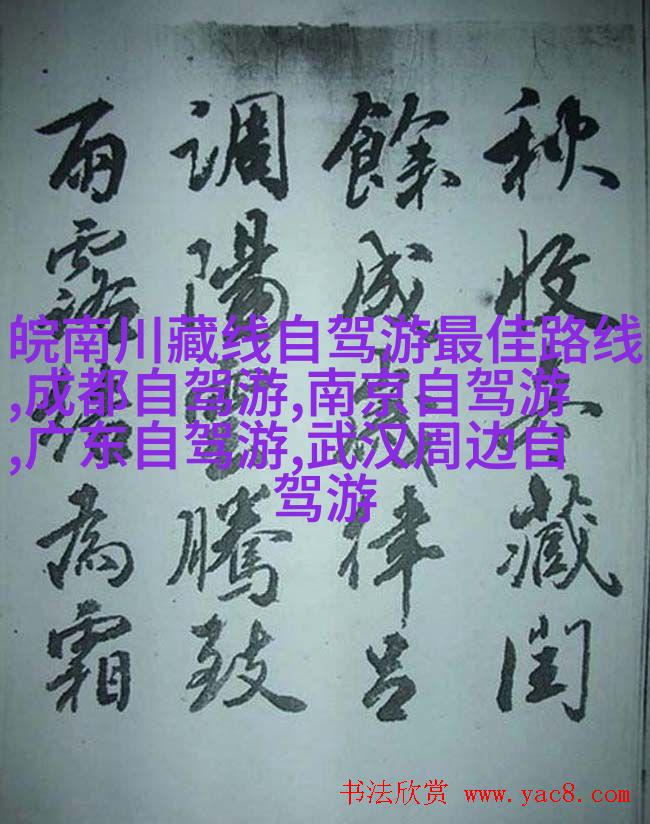 秋收冬藏閏
餘成歲律呂
調陽雲騰致
雨露結為霜
皖南川藏线自驾游最佳路线
,成都自驾游,南京自驾游
,广东自驾游,武汉周边自
驾游
书法欣赏 www.yac8.com